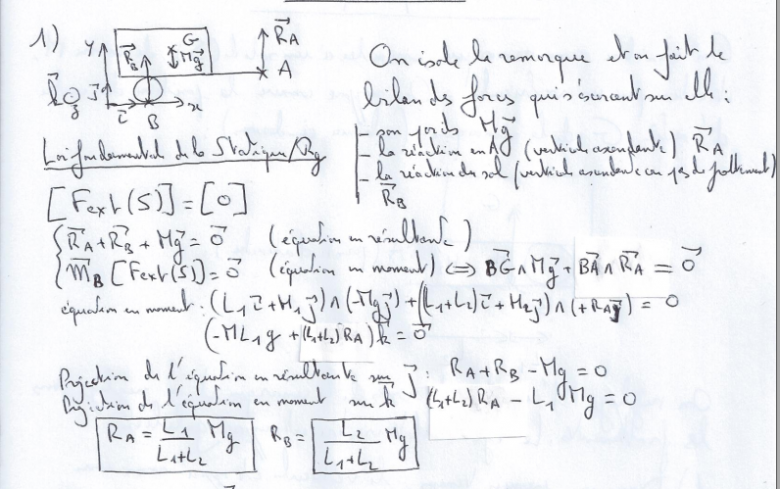 1)
y G R⃗_A
R⃗_B Mg⃗ A
k⃗ j⃗ i⃗ B x
On isole la remorque et on fait le
bilan des forces qui s'exercent sur elle :
- son poids Mg⃗
- la réaction en A (verticale ascendante) R⃗_A
- la réaction du sol (verticale ascendante car pas de frottement)
R⃗_B
Loi fondamentale de la Statique/Rg
[Fext(S)] = [0]
R⃗_A + R⃗_B + Mg⃗ = 0⃗ (équation en résultante)
M⃗_B [Fext(S)] = 0⃗ (équation en moment) ⟺ BG⃗ ∧ Mg⃗ + BA⃗ ∧ R⃗_A = 0⃗
équation en moment : (L₁ i⃗ + H₁ j⃗) ∧ (-Mg j⃗) + ((L₁+L₂) i⃗ + H₂ j⃗) ∧ (+R_A j⃗) = 0
(-ML₁g + (L₁+L₂) R_A) k⃗ = 0⃗
Projection de l'équation en résultante sur j⃗ : R_A + R_B - Mg = 0
Projection de l'équation en moment sur k⃗ (L₁+L₂) R_A - L₁ Mg = 0
R_A = L₁/(L₁+L₂) Mg R_B = L₂/(L₁+L₂) Mg